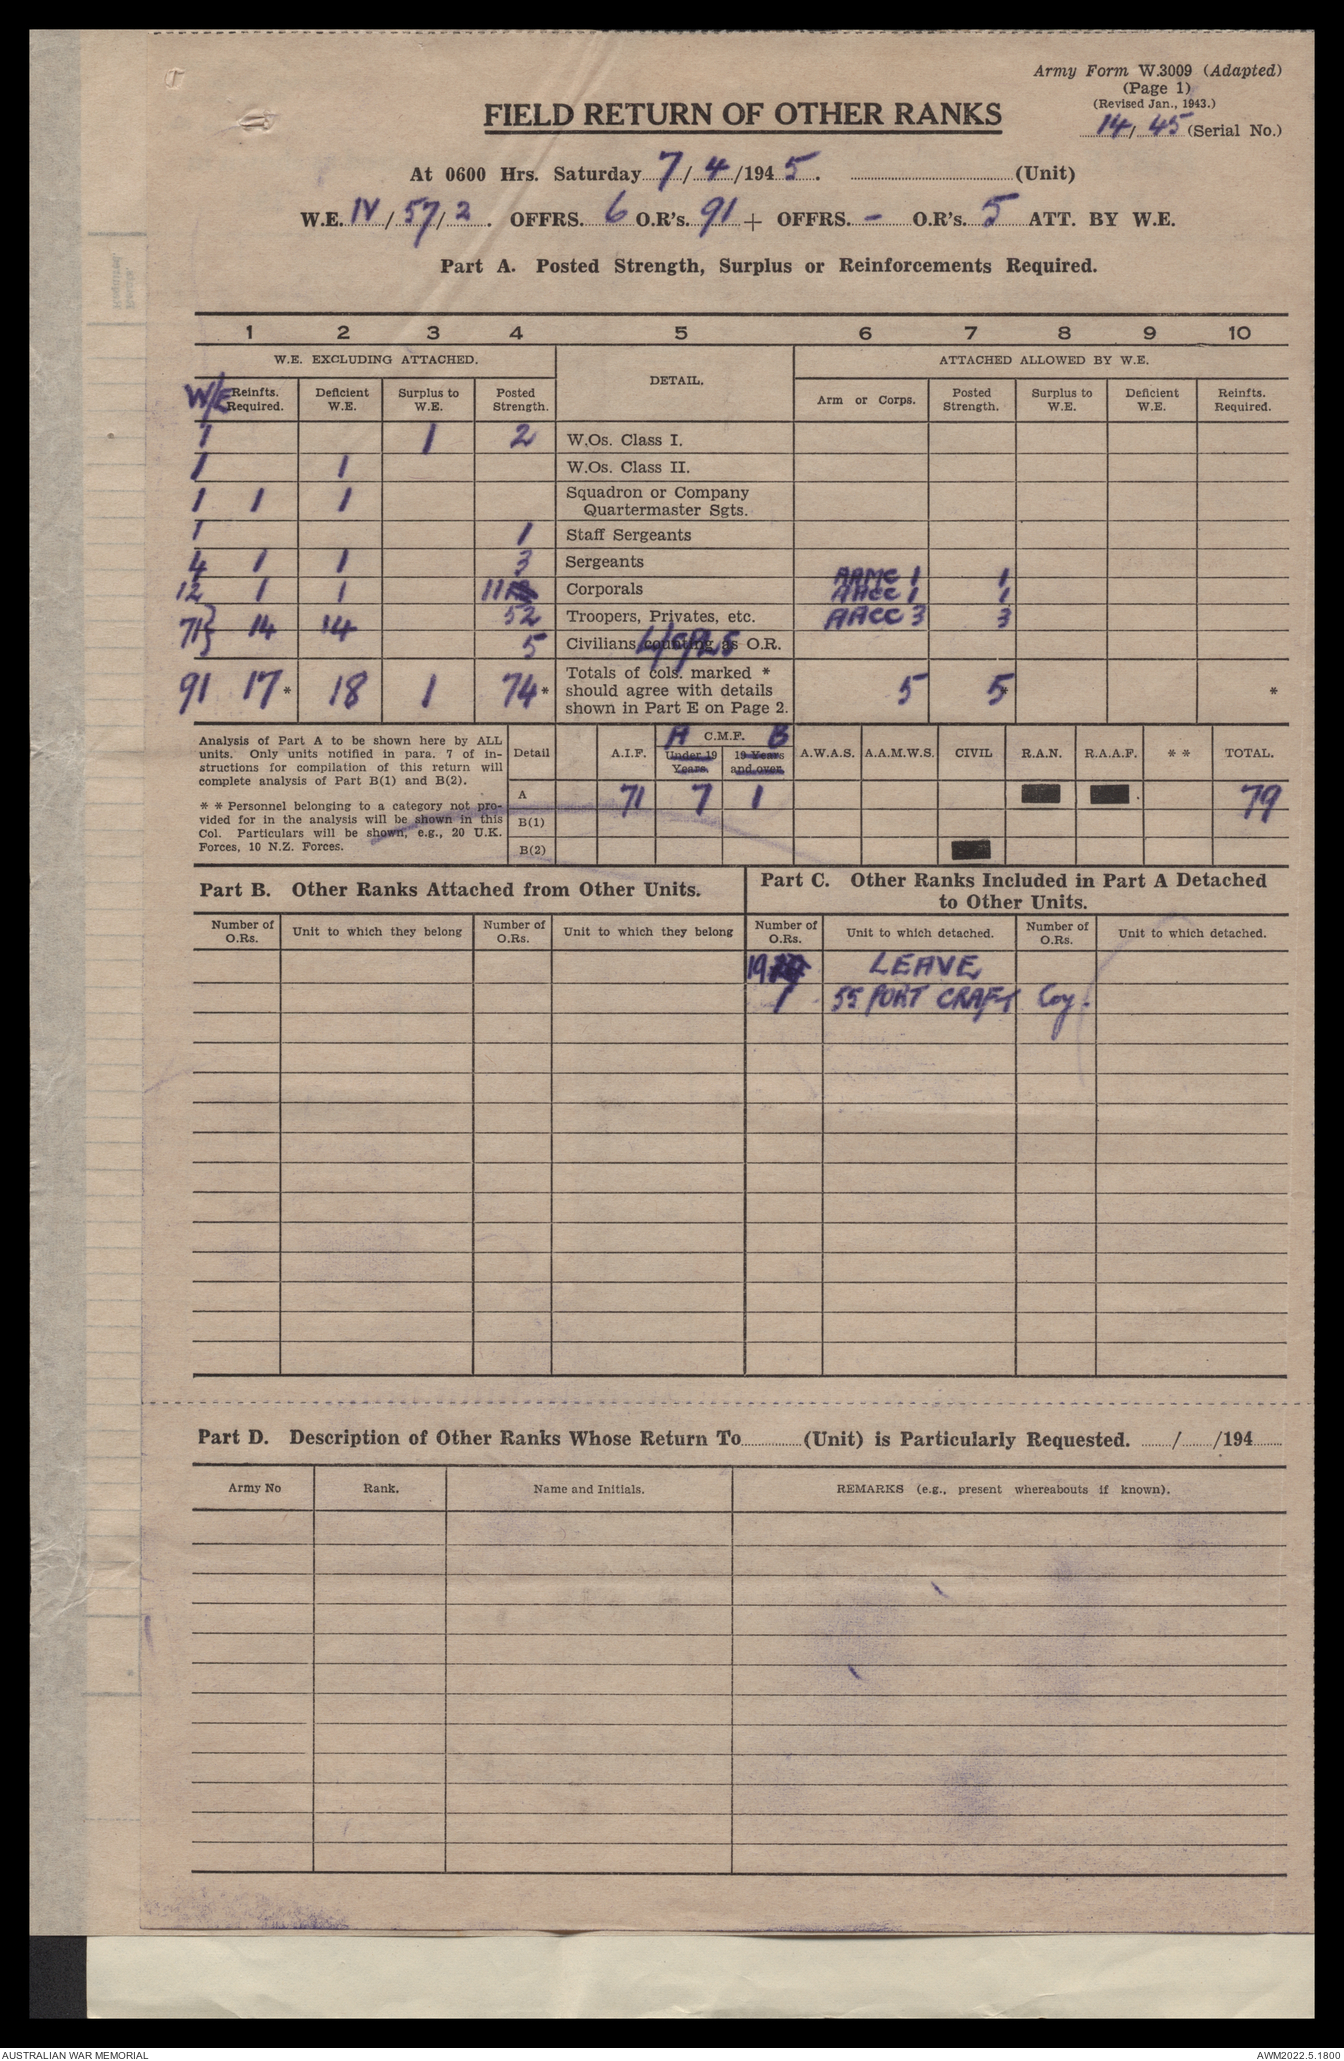 Army Form W.3009 (Adapted)
(Page 1)
(Revised Jan., 1943.)
14/45 (Serial No.)
FIELD RETURN OF OTHER RANKS
At 0600 Hrs. Saturday 7/4/1945. (Unit)
W.E. IV/57/2. OFFRS. 6 O.R's. 91 + OFFRS. - O.R's. 5 ATT. BY W.E.
Part A. Posted Strength, Surplus or Reinforcements Required.
1 2 3 4 5 6 7 8 9 10
W.E. EXCLUDING ATTACHED. DETAIL. ATTACHED ALLOWED BY W.E.
W/E Reinfts. Required. Deficient W.E. Surplus to W.E. Posted Strength. Arm or Corps. Posted Strength. Surplus to W.E. Deficient W.E. Reinfts. Required.
1 1 2 W.Os. Class I.
1 1 W.Os. Class II.
1 1 1 Squadron or Company Quartermaster Sgts.
1 1 Staff Sergeants
4 1 1 3 Sergeants
AAMC 1 1
12 1 1 11 Corporals AACC 1 1
71} 14 14 52 Troopers, Privates, etc. AACC 3 3
5 Civilians counting as O.R.
91 17* 18 1 74* Totals of cols. marked * should agree with details shown in Part E on Page 2. 5 5* *
Analysis of Part A to be shown here by ALL
units. Only units notified in para. 7 of in-
structions for compilation of this return will
complete analysis of Part B(1) and B(2).
* * Personnel belonging to a category not pro-
vided for in the analysis will be shown in this
Col. Particulars will be shown, e.g., 20 U.K.
Forces, 10 N.Z. Forces.
A C.M.F. B
Detail A.I.F. Under 19 Years. 19 Years and over. A.W.A.S. A.A.M.W.S. CIVIL R.A.N. R.A.A.F. * * TOTAL.
A 71 7 1 79
B(1)
B(2)
Part B. Other Ranks Attached from Other Units.
Part C. Other Ranks Included in Part A Detached
to Other Units.
Number of O.Rs. Unit to which they belong Number of O.Rs. Unit to which they belong Number of O.Rs. Unit to which detached. Number of O.Rs. Unit to which detached.
19 LEAVE
1 55 PORT CRAFT Coy.
Part D. Description of Other Ranks Whose Return To (Unit) is Particularly Requested. / /194
Army No Rank. Name and Initials. REMARKS (e.g., present whereabouts if known).
AUSTRALIAN WAR MEMORIAL AWM2022.5.1800